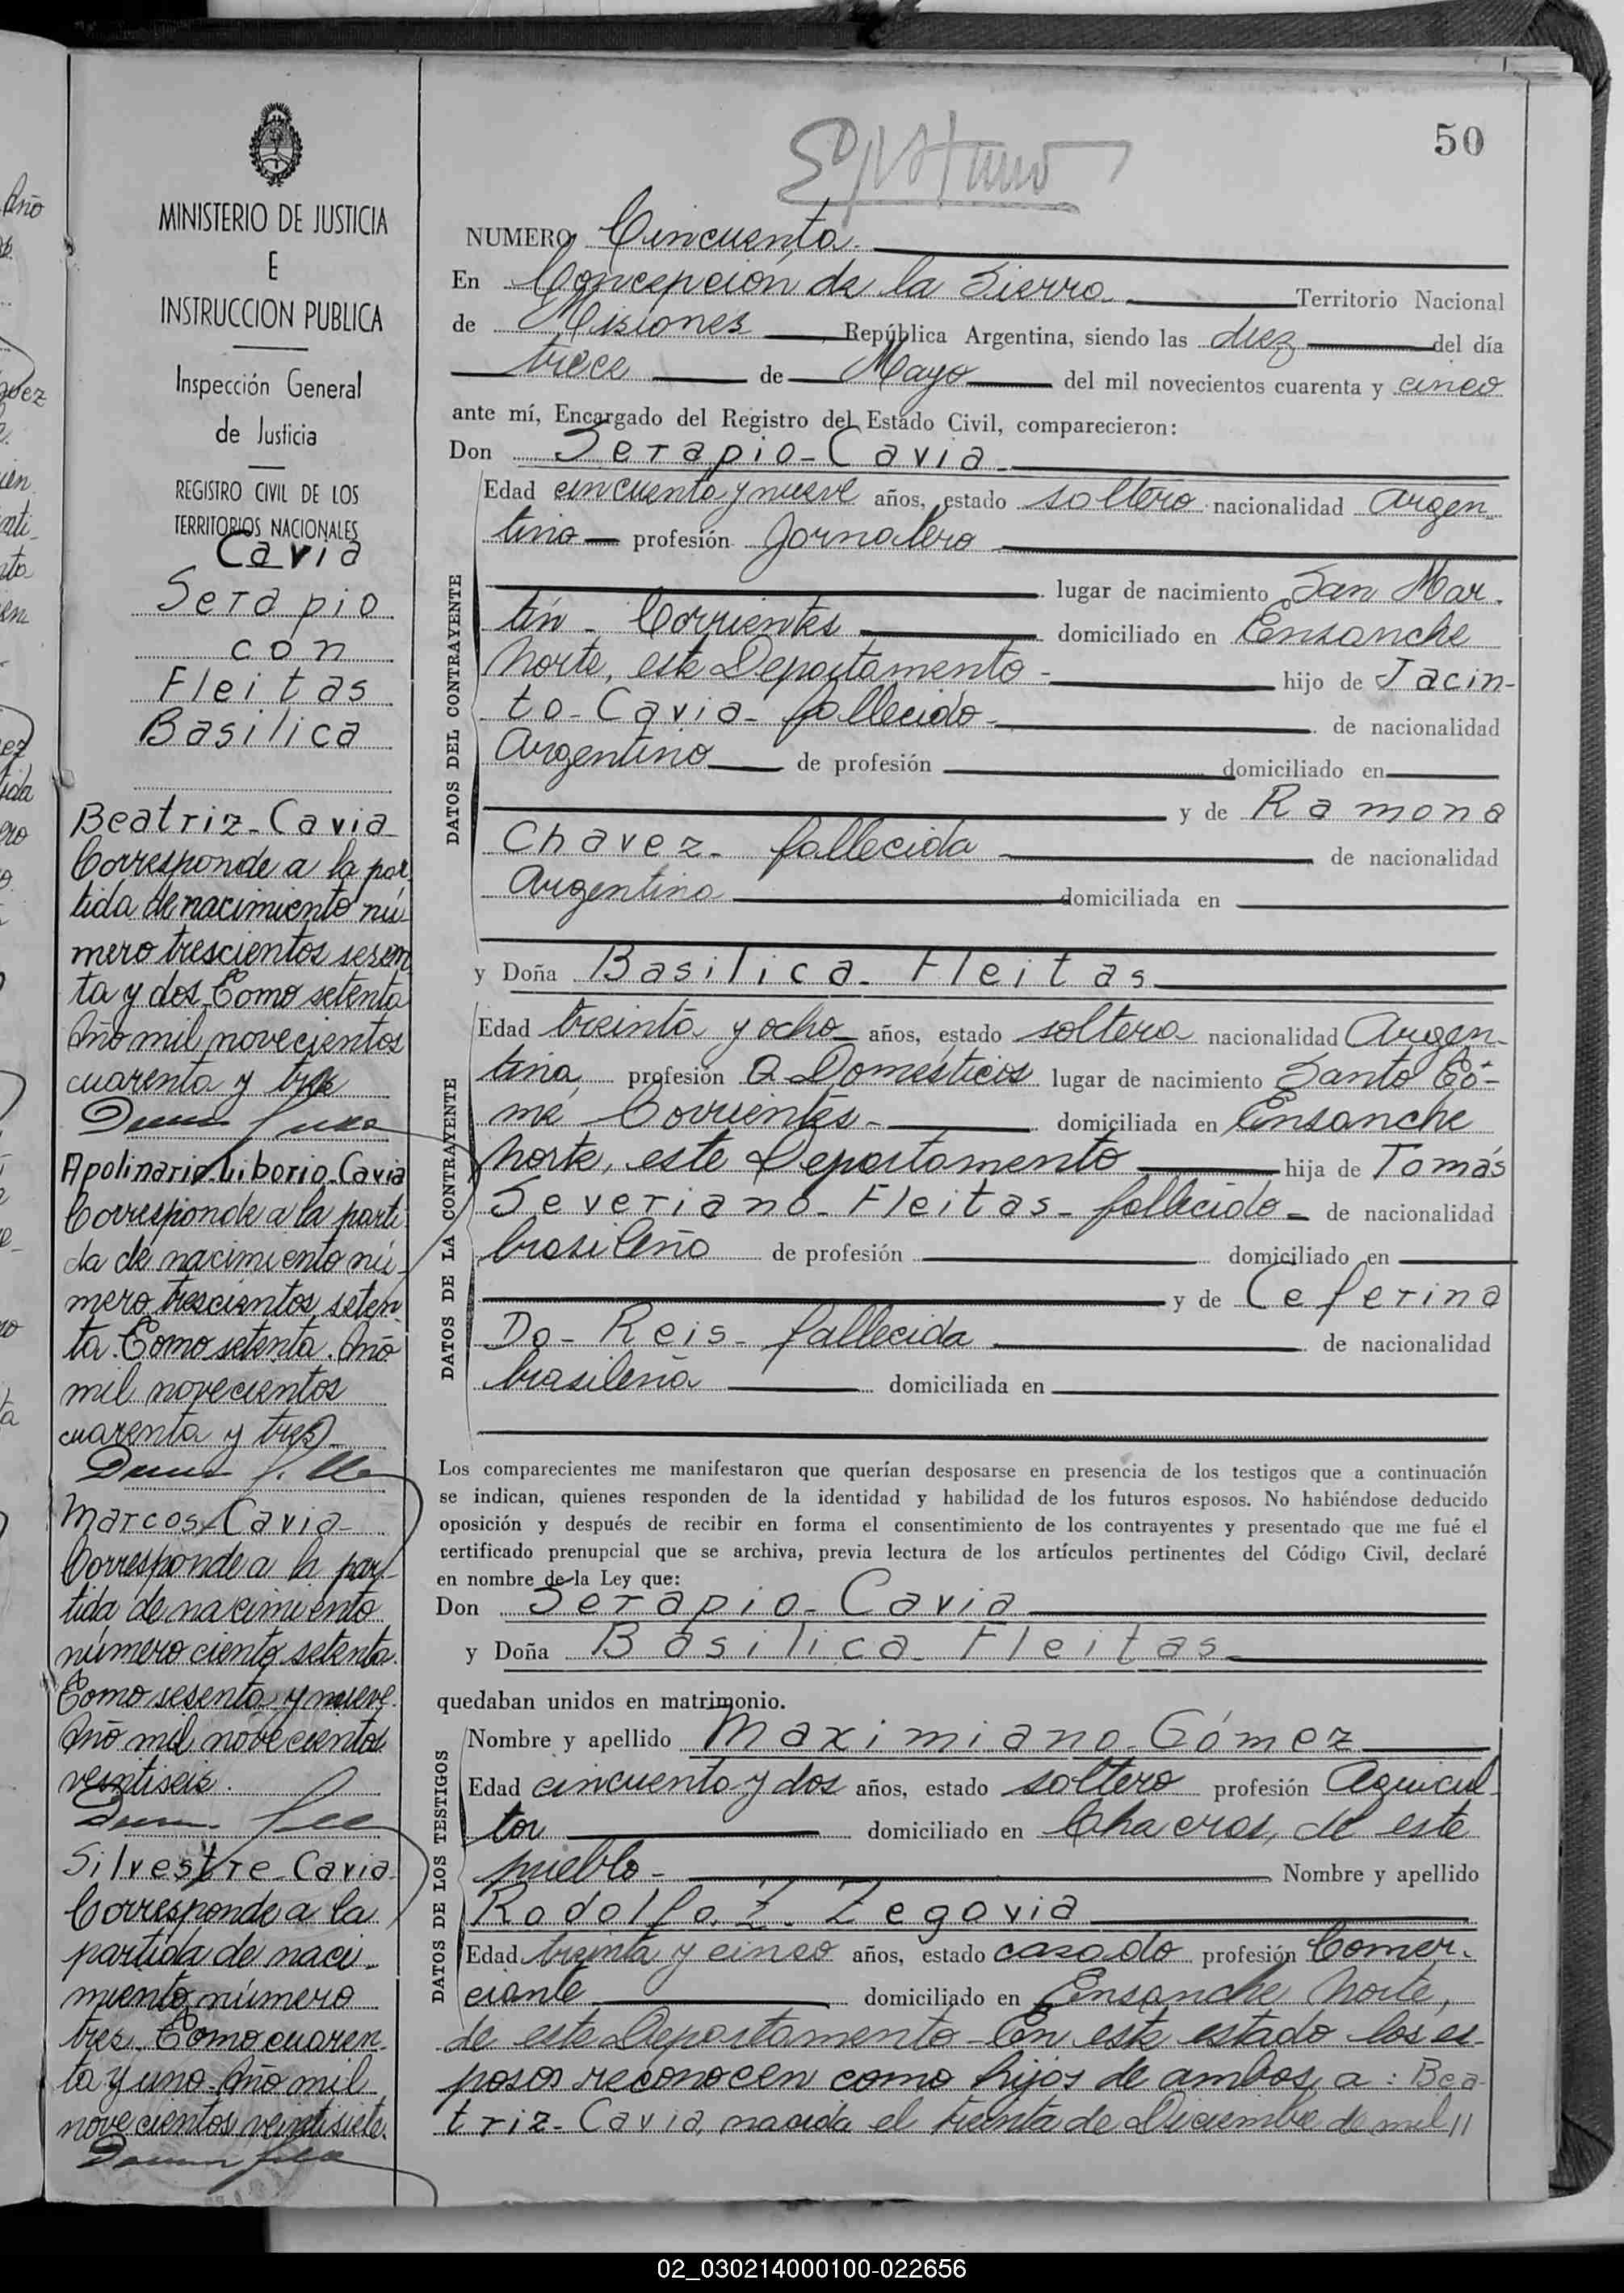 50
MINISTERIO DE JUSTICIA
E
INSTRUCCION PUBLICA
Inspección General
de Justicia
REGISTRO CIVIL DE LOS
TERRITORIOS NACIONALES
Cavia
Serapio
con
Fleitas
Basilica
Beatriz-Cavia
Corresponde a la par
tida de nacimiento nú
mero trescientos sesen
ta y dos Tomo setenta
Año mil novecientos
cuarenta y tres
Apolinario-Liborio-Cavia
Corresponde a la parti
da de nacimiento nú-
mero trescientos seten
ta. Tomo setenta. Año
mil novecientos
cuarenta y tres-
Marcos-Cavia-
Corresponde a la par-
tida de nacimiento
número ciento setenta.
Tomo sesenta y nueve.
Año mil novecientos
veintiseis.
Silvestre-Cavia
Corresponde a la
partida de naci-
miento número
tres. Tomo cuaren-
ta y uno. Año mil
novecientos veintisiete.
NUMERO Cincuenta.
En Concepción de la Sierra Territorio Nacional
de Misiones República Argentina, siendo las diez del día
trece de Mayo del mil novecientos cuarenta y cinco
ante mí, Encargado del Registro del Estado Civil, comparecieron:
Don Serapio-Cavia-
DATOS DEL CONTRAYENTE
Edad cincuenta y nueve años, estado soltero nacionalidad Argen-
tina profesión Jornalero
lugar de nacimiento San Mar-
tín - Corrientes domiciliado en Ensanche
Norte, este Departamento - hijo de Jacin-
to-Cavia- fallecido- de nacionalidad
Argentino de profesión domiciliado en
y de Ramona
Chavez- fallecida de nacionalidad
Argentina domiciliada en
y Doña Basilica-Fleitas
DATOS DE LA CONTRAYENTE
Edad treinta y ocho años, estado soltera nacionalidad Argen-
tina profesión Q Domésticos lugar de nacimiento Santo To-
mé Corrientes- domiciliada en Ensanche
Norte, este Departamento hija de Tomás
Severiano-Fleitas-fallecido- de nacionalidad
brasileño de profesión domiciliado en
y de Ceferina
Do-Reis- fallecida de nacionalidad
brasileña domiciliada en
Los comparecientes me manifestaron que querían desposarse en presencia de los testigos que a continuación
se indican, quienes responden de la identidad y habilidad de los futuros esposos. No habiéndose deducido
oposición y después de recibir en forma el consentimiento de los contrayentes y presentado que me fué el
certificado prenupcial que se archiva, previa lectura de los artículos pertinentes del Código Civil, declaré
en nombre de la Ley que:
Don Serapio-Cavia
y Doña Basilica-Fleitas-
quedaban unidos en matrimonio.
DATOS DE LOS TESTIGOS
Nombre y apellido Maximiano-Gómez
Edad cincuenta y dos años, estado soltero profesión Agricul-
tor domiciliado en Chacras, de este
pueblo- Nombre y apellido
Rodolfo-Z-Zegovia
Edad treinta y cinco años, estado casado profesión Comer-
ciante domiciliado en Ensanche Norte,
de este Departamento - En este estado los es-
posos reconocen como hijos de ambos, a: Bea-
triz-Cavia, nacida el treinta de Diciembre de mil //
02_030214000100-022656